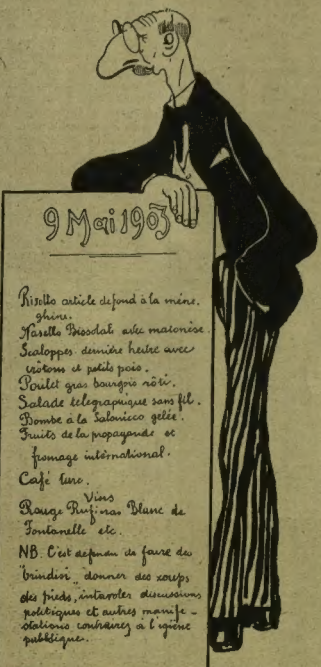 9 Mai 1903
Risotto article de fond à la méne.
ghine.
Nasello Bissolati avec maionèse.
Scaloppes dernière heure avec
crôtons et petits pois.
Poulet gras bourgois rôti.
Salade telegraphique sans fil.
Bombe à la Salonicco gelée.
Fruits de la propagande et
fromage international.
Café turc.
Vins
Rouge Rufinas Blanc de
Fontanelle etc.
NB. C'est defendu de faire des
"brindisi" donner des
des pieds, discussions
politiques et autres manife-
stations contraires à l'igiène
pubblique.